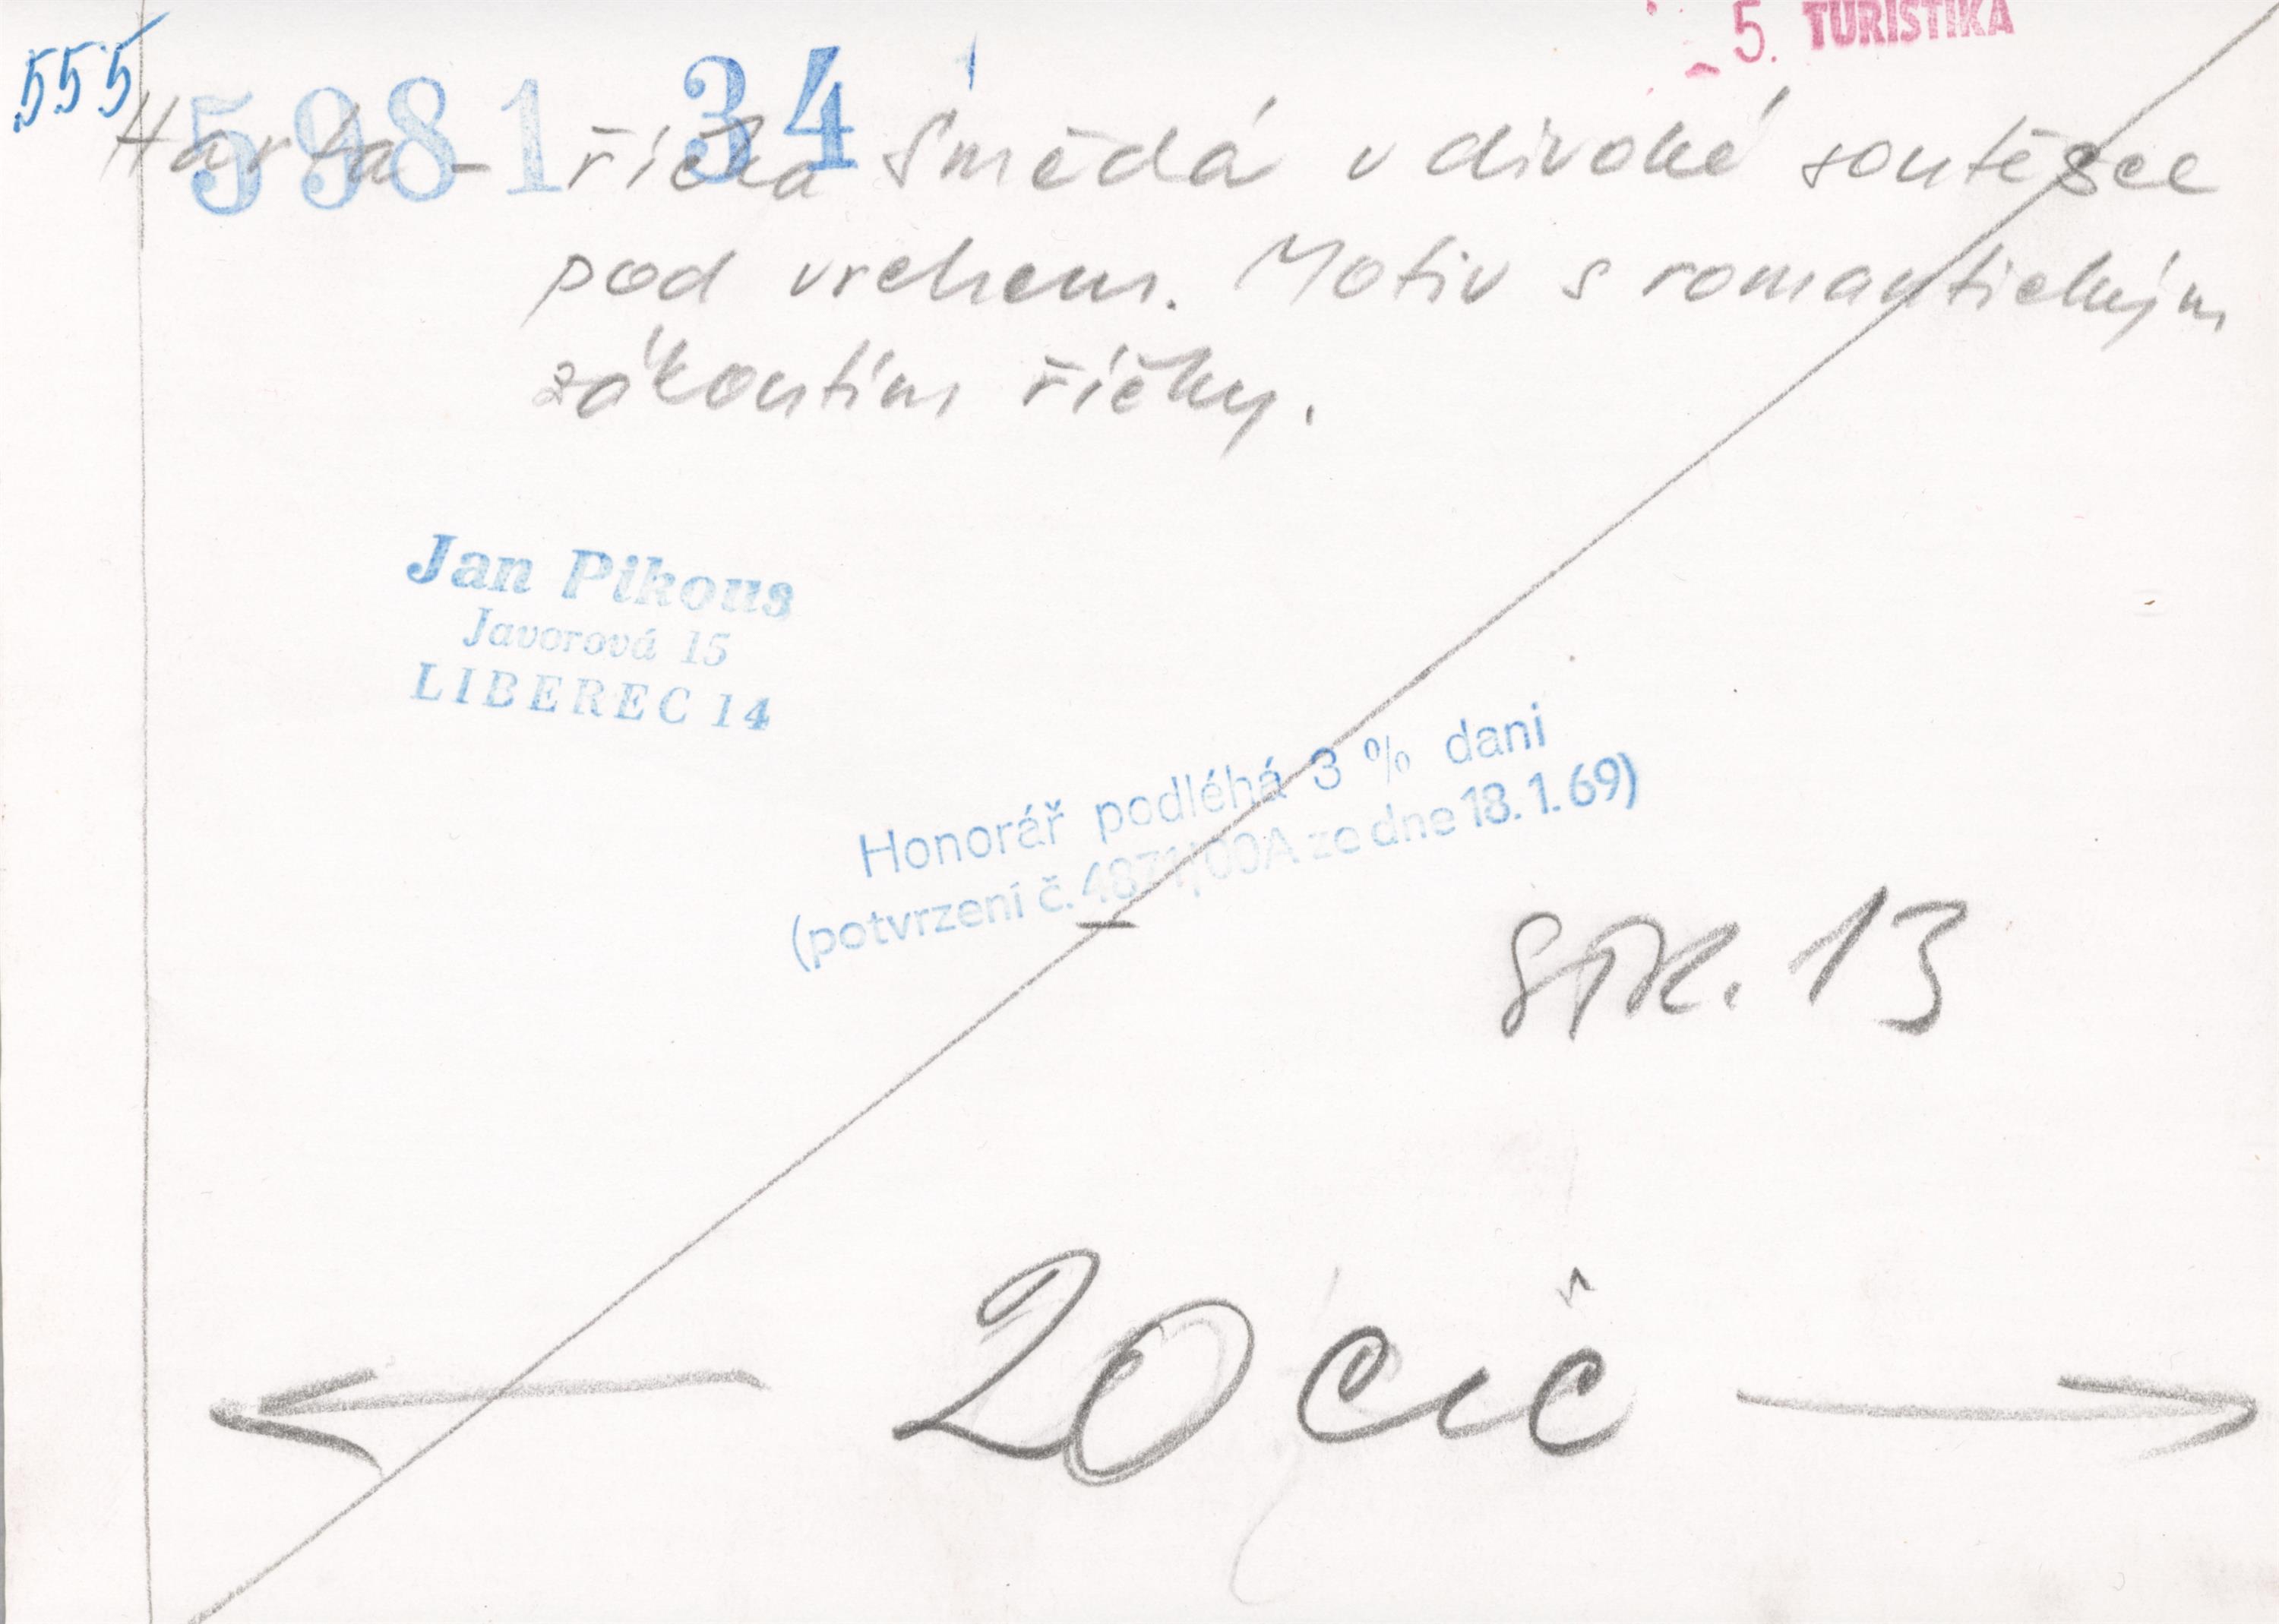 5. TURISTIKA
555
5981 34
Harta - říčka Smědá v divoké soutěsce
pod vrchem. Motiv s romantickým
zákoutím říčky.
Jan Pikous
Javorová 15
LIBEREC 14
Honorář podléhá 3 % dani
(potvrzení č. 4871/00A ze dne 18.1.69)
STR. 13
20 cič